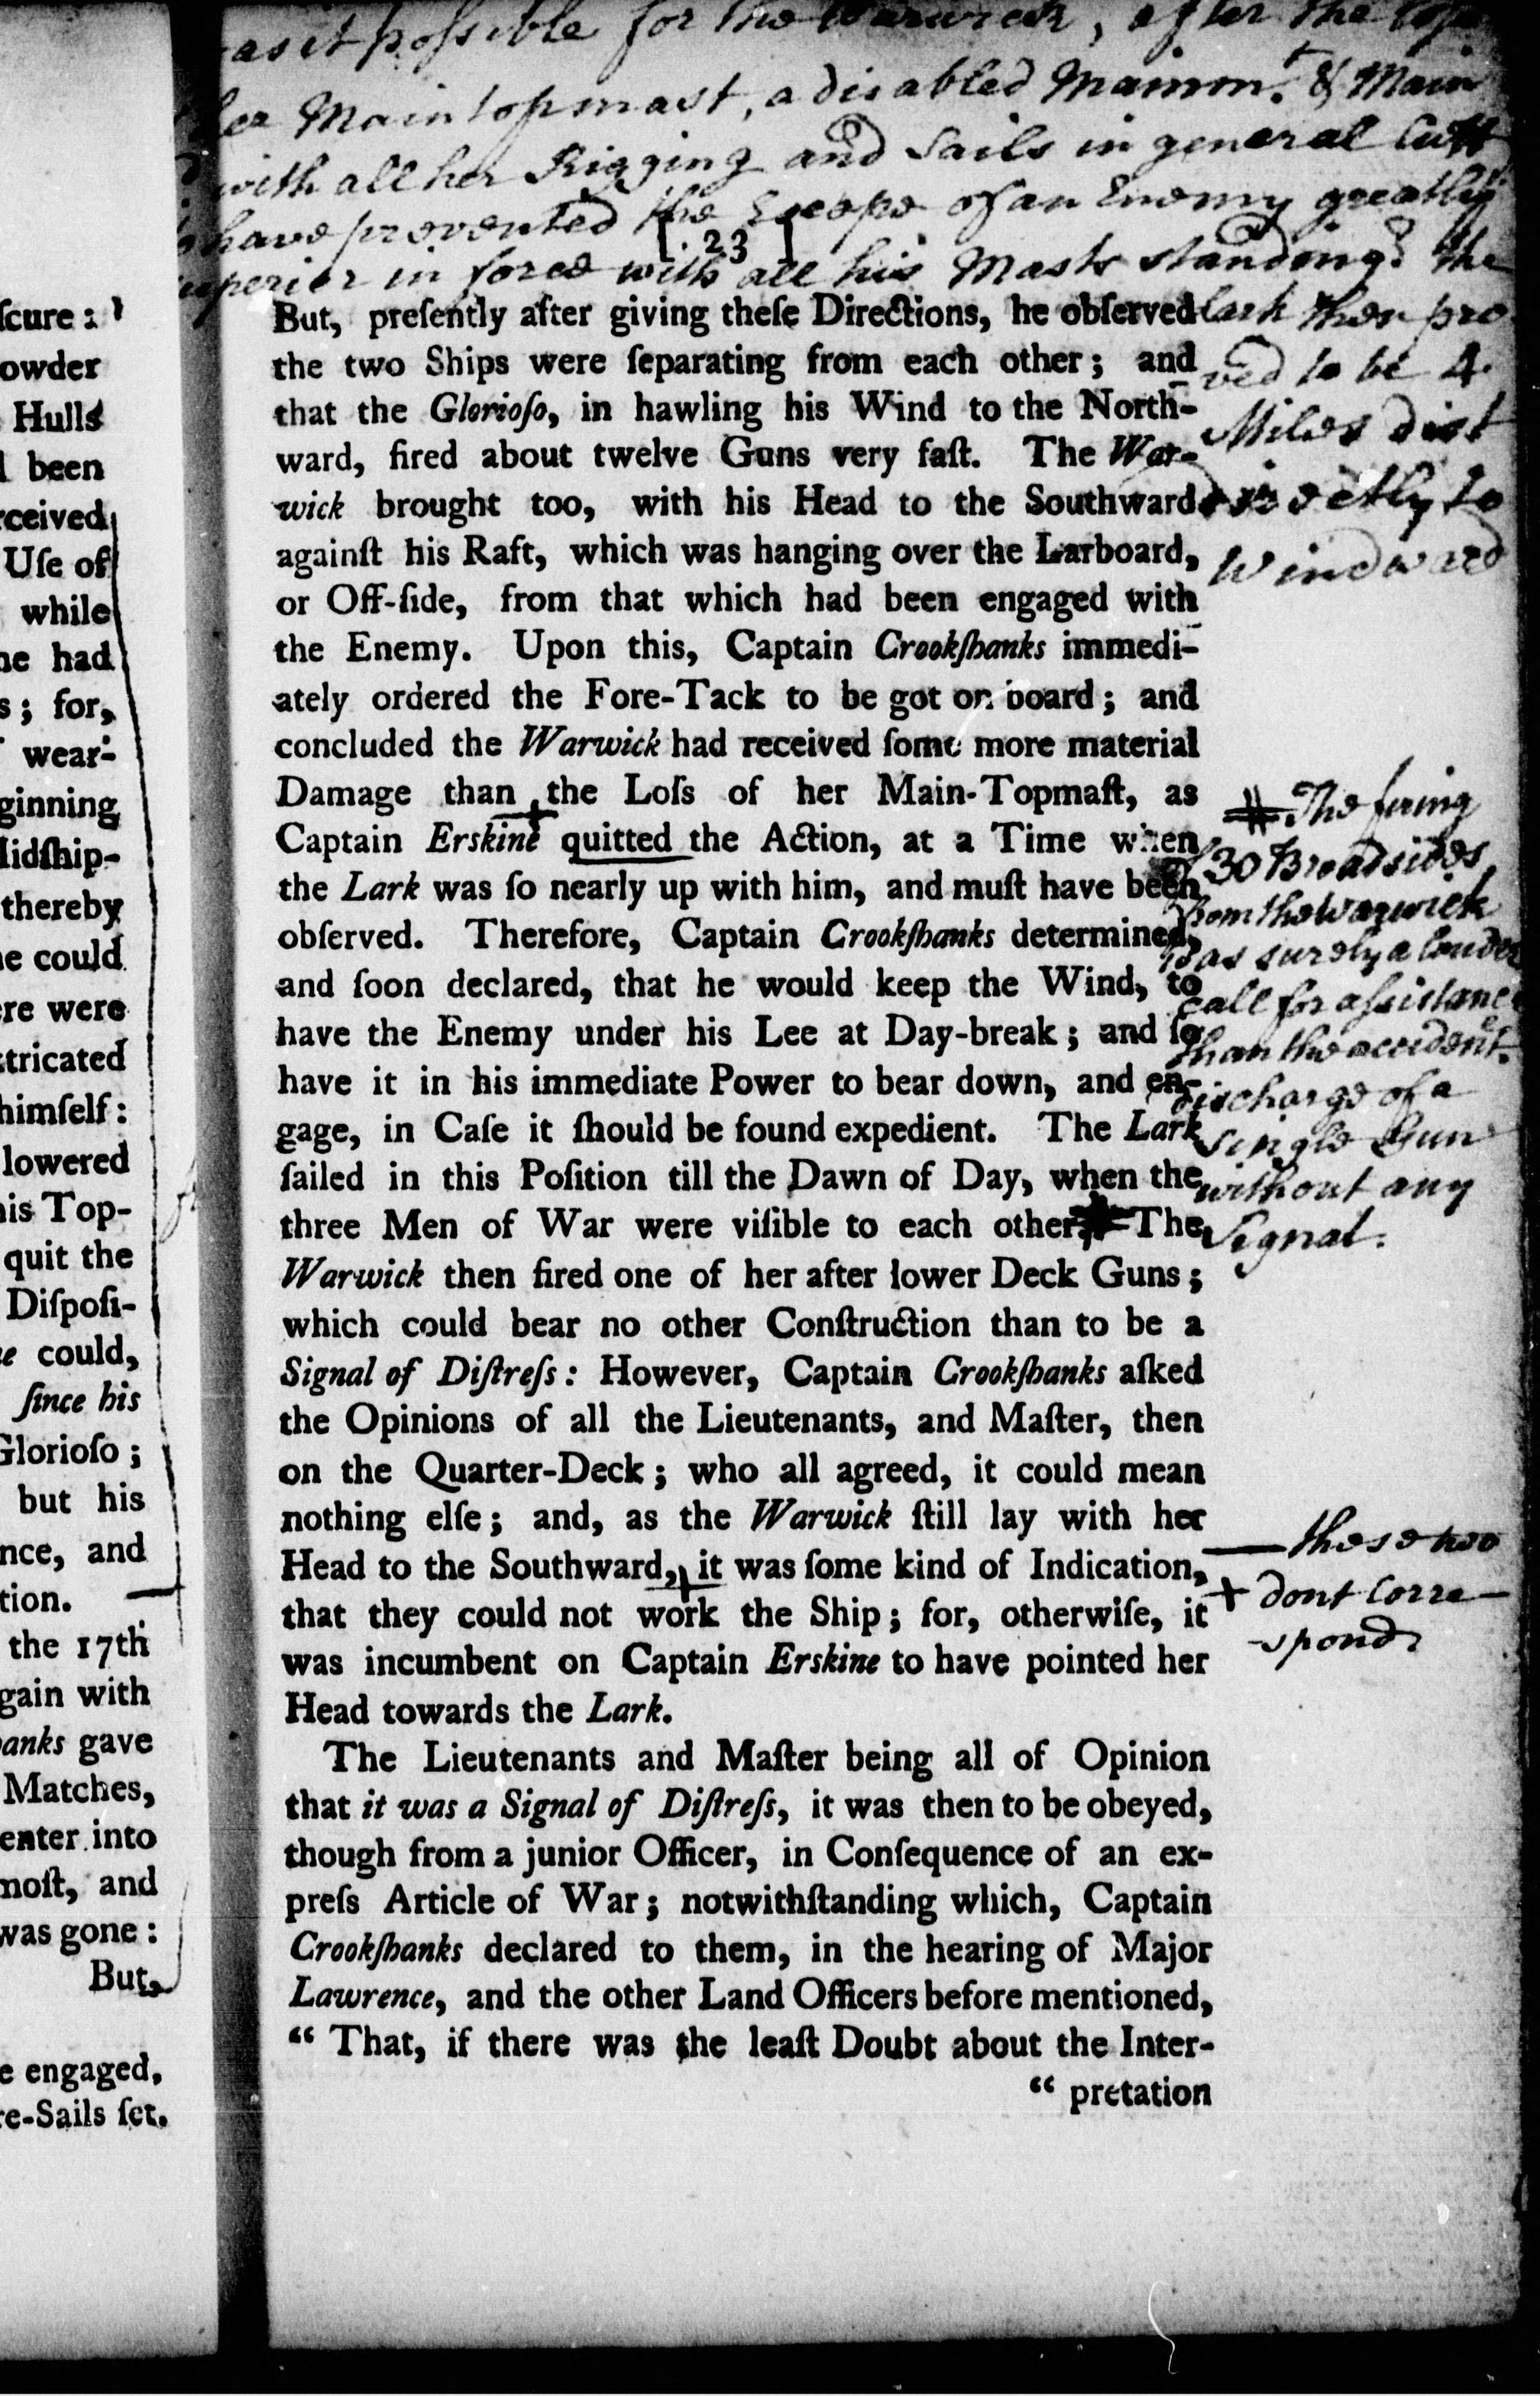 scure:
owder
Hulls
been
ceived
Uſe of
while
he had
s; for,
wear-
ginning
lidſhip-
thereby
e could
re were
tricated
himſelf:
lowered
is Top-
quit the
Diſpoſi-
e could,
ſince his
Glorioſo;
but his
nce, and
tion.
the 17th
gain with
anks gave
Matches,
enter into
moſt, and
was gone:
But,
e engaged,
re-Sails ſet.
as it poſsible for the Warwick, after the
her Maintopmast, a disabled Mainm.t & Main
with all her Rigging and Sails in general Cutt
have prevented the Escape of an Enemy greatly
superior in force with all his Masts standing? the
lark then pro
ved to be 4
Miles dist
directly to
Windward
[ 23 ]
But, preſently after giving theſe Directions, he obſerved
the two Ships were ſeparating from each other; and
that the Glorioſo, in hawling his Wind to the North-
ward, fired about twelve Guns very faſt. The War-
wick brought too, with his Head to the Southward
againſt his Raft, which was hanging over the Larboard,
or Off-ſide, from that which had been engaged with
the Enemy. Upon this, Captain Crookſhanks immedi-
ately ordered the Fore-Tack to be got on board; and
concluded the Warwick had received ſome more material
Damage than the Loſs of her Main-Topmaſt, as
Captain Erskine quitted the Action, at a Time when
the Lark was ſo nearly up with him, and muſt have been
obſerved. Therefore, Captain Crookſhanks determined,
and ſoon declared, that he would keep the Wind, to
have the Enemy under his Lee at Day-break; and ſo
have it in his immediate Power to bear down, and en-
gage, in Caſe it ſhould be found expedient. The Lark
ſailed in this Poſition till the Dawn of Day, when the
three Men of War were viſible to each other # The
Warwick then fired one of her after lower Deck Guns;
which could bear no other Conſtruction than to be a
Signal of Diſtreſs: However, Captain Crookſhanks aſked
the Opinions of all the Lieutenants, and Maſter, then
on the Quarter-Deck; who all agreed, it could mean
nothing elſe; and, as the Warwick ſtill lay with her
Head to the Southward, + it was ſome kind of Indication,
that they could not work the Ship; for, otherwiſe, it
was incumbent on Captain Erskine to have pointed her
Head towards the Lark.
The Lieutenants and Maſter being all of Opinion
that it was a Signal of Diſtreſs, it was then to be obeyed,
though from a junior Officer, in Conſequence of an ex-
preſs Article of War; notwithſtanding which, Captain
Crookſhanks declared to them, in the hearing of Major
Lawrence, and the other Land Officers before mentioned,
“ That, if there was the leaſt Doubt about the Inter-
“ pretation
# The firing
of 30 Broadsides
from the Warwick
was surely a louder
call for aſsistance
than the accident.
discharge of a
single Gun
without any
Signal.
— these two
+ dont Corre-
-spond